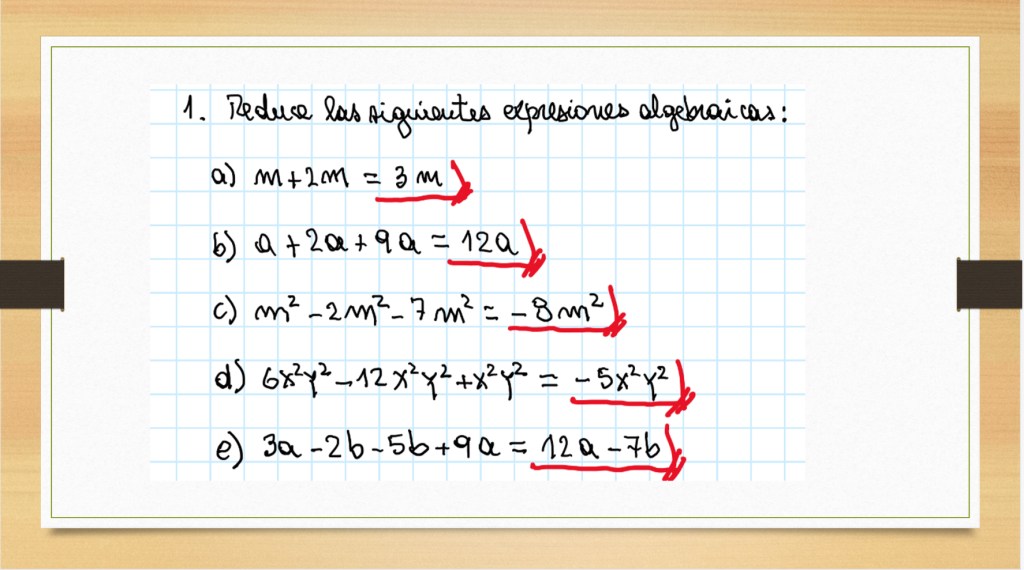 1. Reduce las siguientes expresiones algebraicas:
a) m+2m = 3m
b) a+2a+9a = 12a
c) m² -2m² -7m² = -8m²
d) 6x²y² -12x²y² +x²y² = -5x²y²
e) 3a -2b -5b +9a = 12a -7b